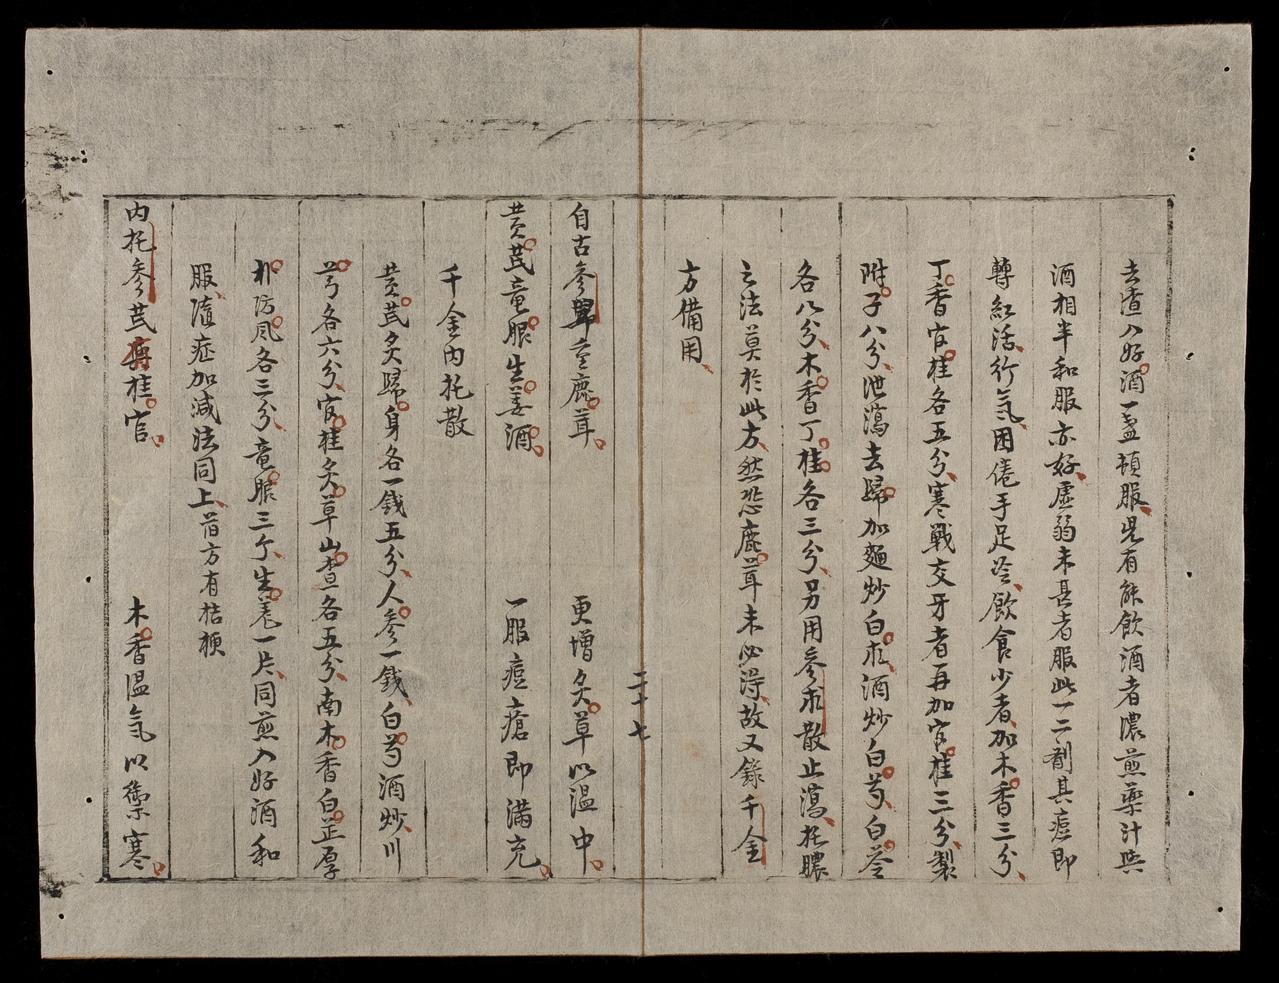 去渣入好酒一盞頓服児有能飲酒者濃煎藥汁與
酒相半和服亦好虛弱未甚者服此一二劑其痘即
轉紅活行氣困倦手足冷飲食少者加木香三分
丁香官桂各五分寒戰交牙者再加官桂三分製
附子八分泄瀉去歸加麵炒白朮酒炒白芍白苓
各八分木香丁桂各三分另用参朮散止瀉托膿
之法莫於此方然恐鹿茸未必淂故又錄千金
方備用
二十七
自古参歸壹鹿茸 更增炙草以温中
黄芪竜眼生姜酒 一服痘瘡即滿充
千金内托散
黄芪炙歸身各一錢五分人参一錢白芍酒炒川
芎各六分官桂炙草山查各五分南木香白芷厚
朴防风各三分竜眼三个生姜一片同煎入好酒和
服隨症加減法同上昔方有桔梗
内托参芪藥桂官 木香温氣以禦寒